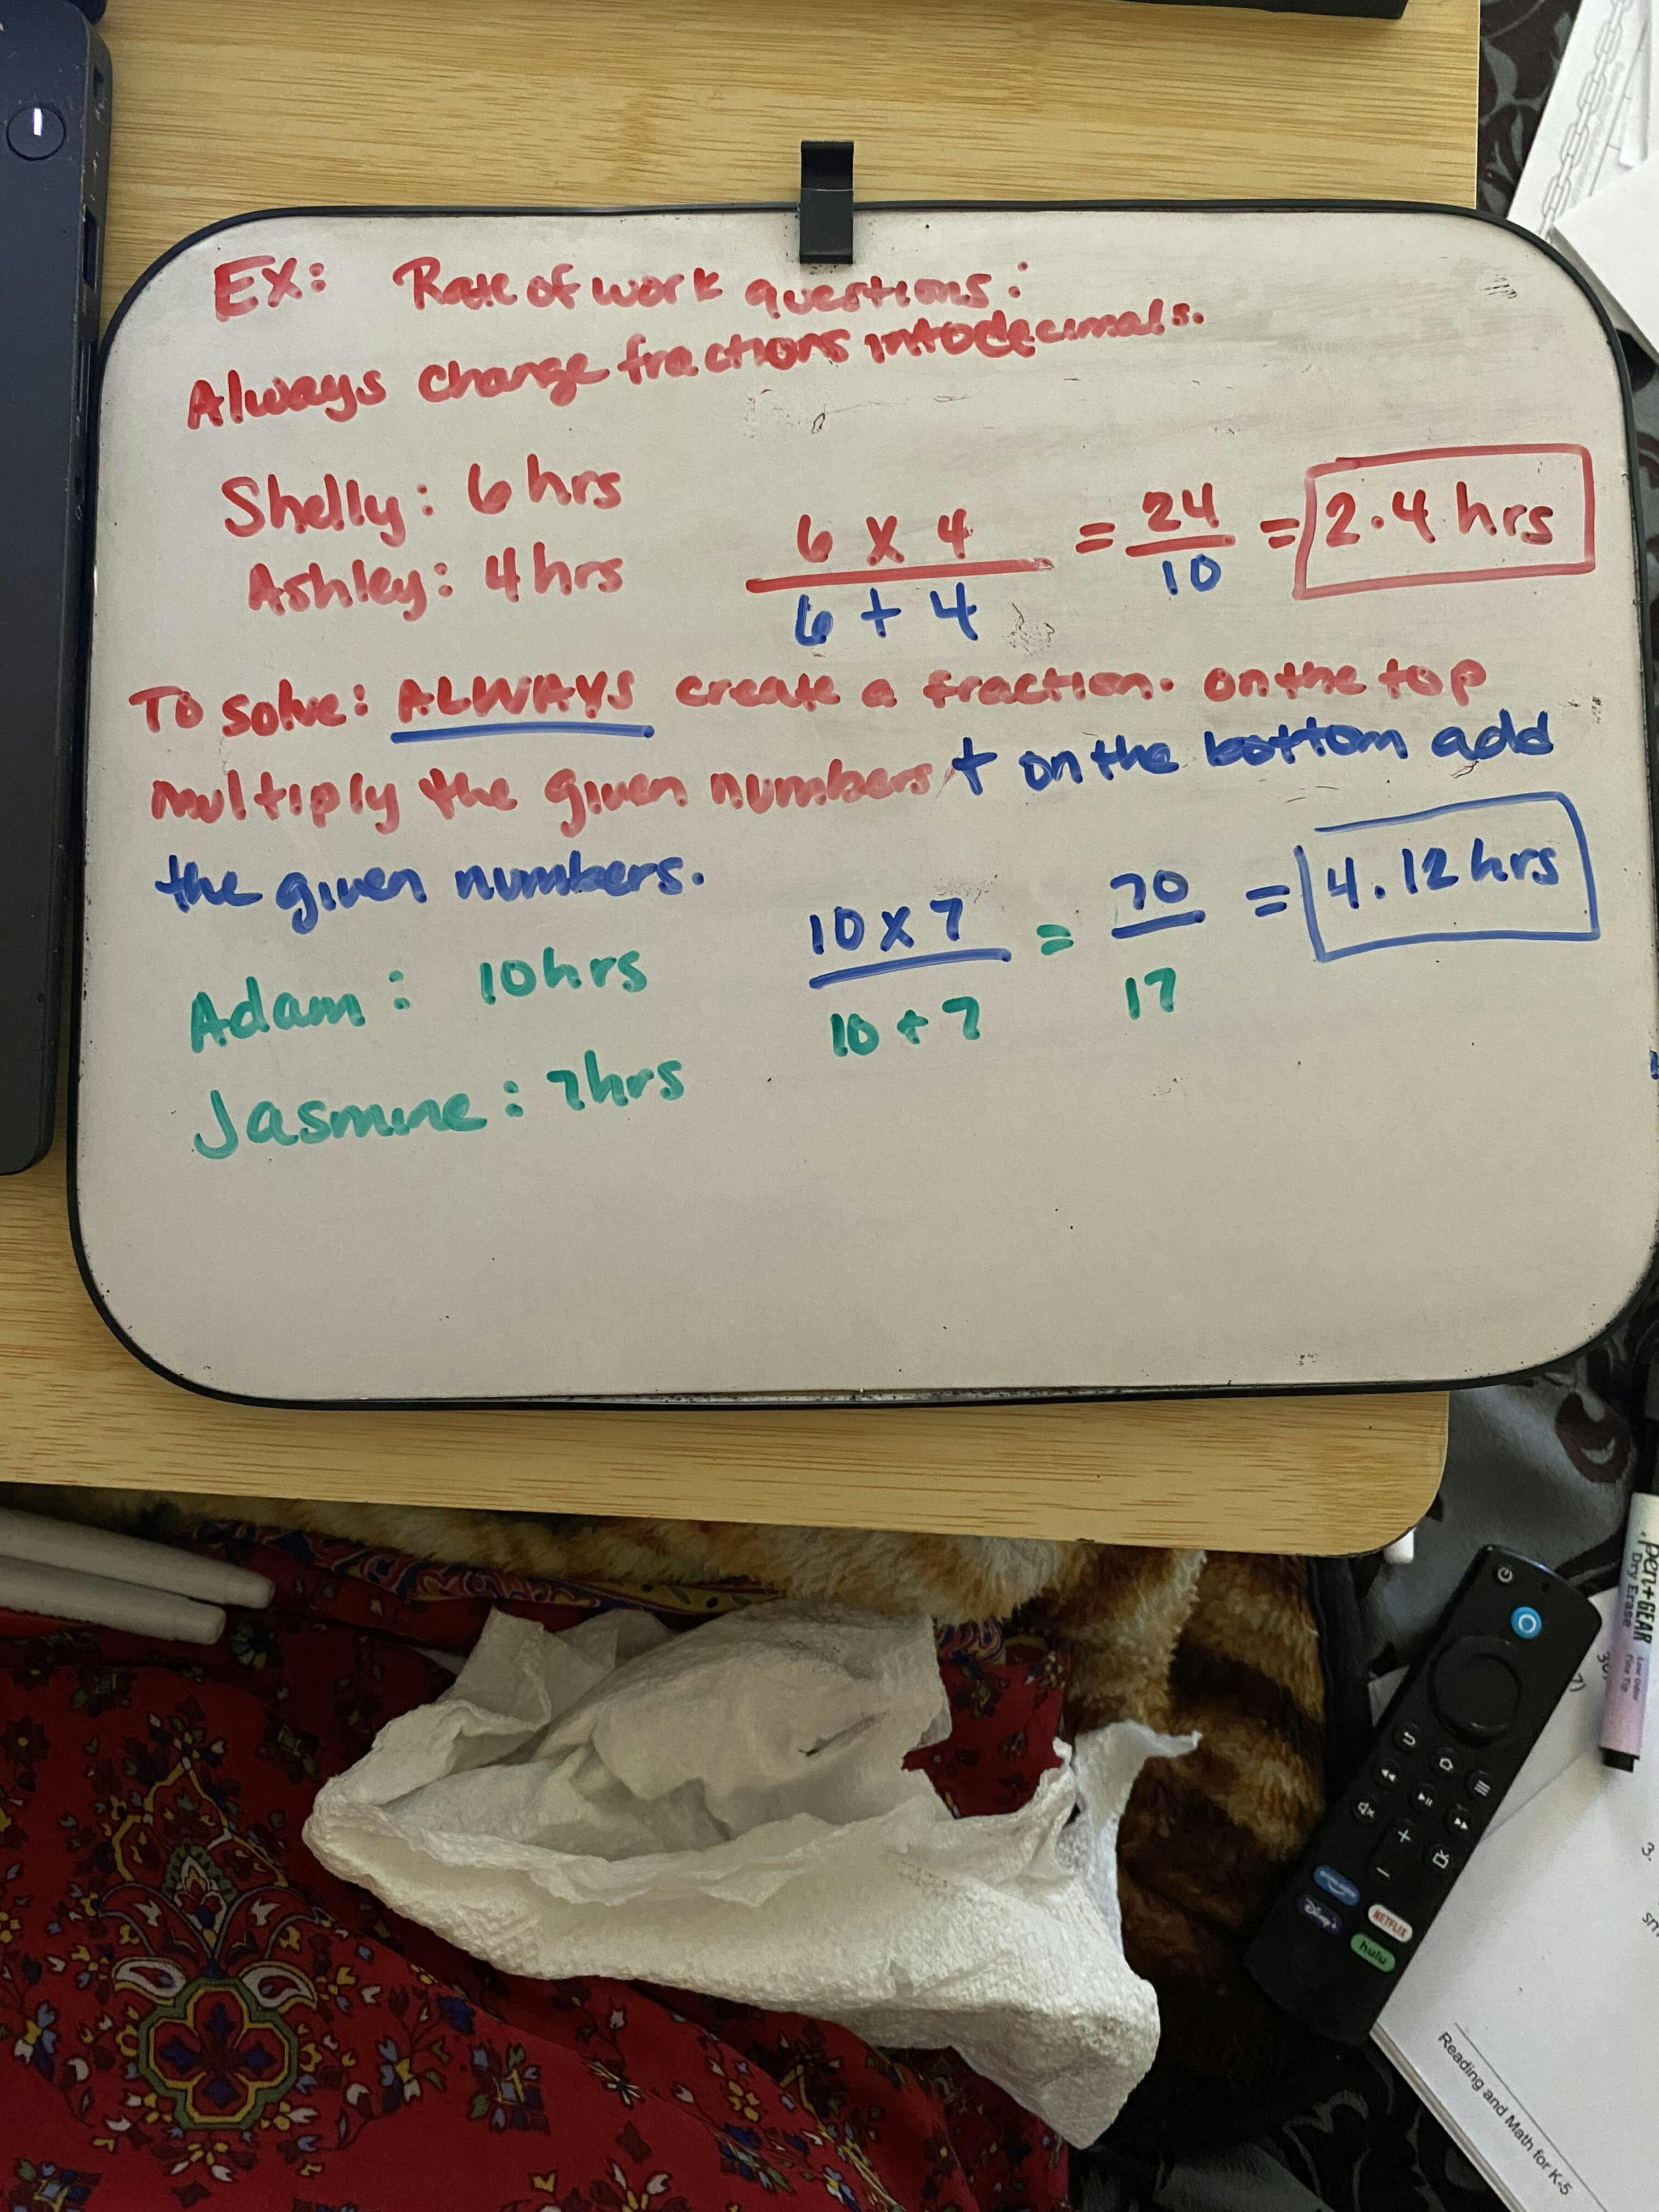 EX: Rate of work questions:
Always change fractions into decimals.
Shelly: 6 hrs
Ashley: 4 hrs
6 x 4 = 24 = 2.4 hrs
6 + 4 10
To solve: ALWAYS create a fraction. on the top
multiply the given numbers + on the bottom add
the given numbers.
Adam: 10 hrs
10 x 7 = 70 = 4.12 hrs
10 + 7 17
Jasmine: 7 hrs
.pen+GEAR
Dry Erase
Low Odor
Fine Tip
prime video
NETFLIX
Disney+
hulu
3.
Reading and Math for K-5